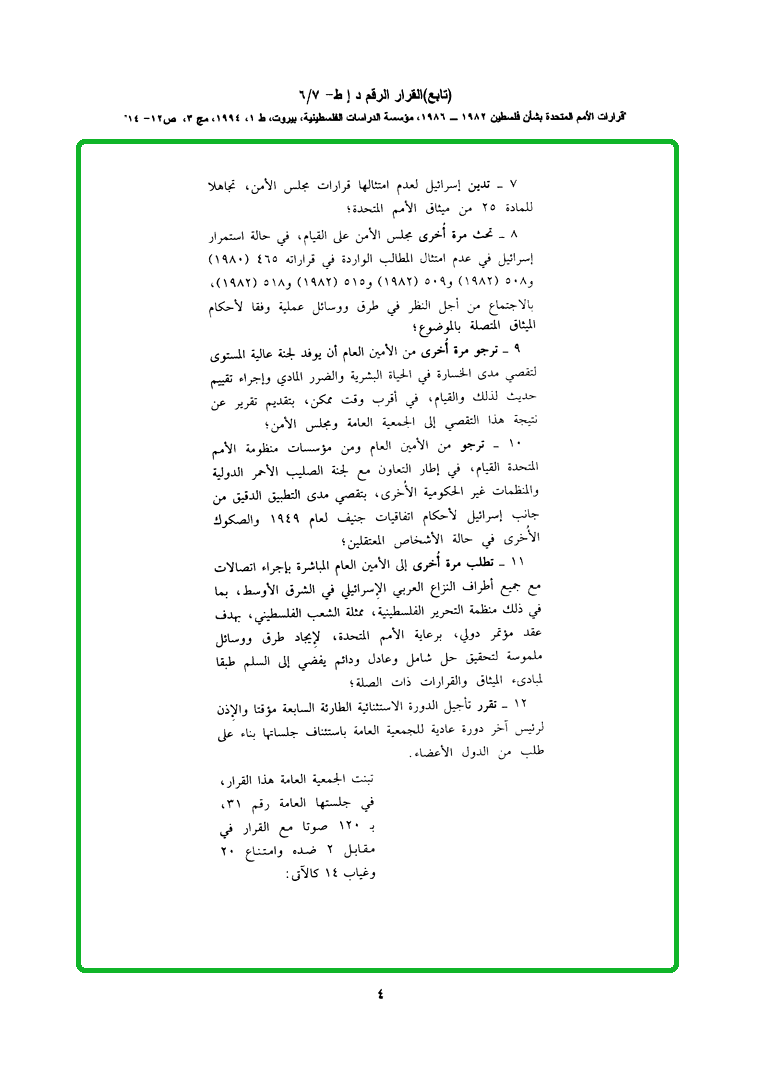 (تابع)القرار الرقم د إ ط– ٦/٧
"قرارات الأمم المتحدة بشأن فلسطين ١٩٨٢ ــ ١٩٨٦، مؤسسة الدراسات الفلسطينية، بيروت، ط ١، ١٩٩٤، مج ٣، ص١٢– ١٤"
٧ ـ تدين إسرائيل لعدم امتثالها قرارات مجلس الأمن، تجاهلا
للمادة ٢٥ من ميثاق الأمم المتحدة؛
٨ ـ تحث مرة أُخرى مجلس الأمن على القيام، في حالة استمرار
إسرائيل في عدم امتثال المطالب الواردة في قراراته ٤٦٥ (١٩٨٠)
و٥٠٨ (١٩٨٢) و٥٠٩ (١٩٨٢) و٥١٥ (١٩٨٢) و٥١٨ (١٩٨٢)،
بالاجتماع من أجل النظر في طرق ووسائل عملية وفقا لأحكام
الميثاق المتصلة بالموضوع؛
٩ ـ ترجو مرة أُخرى من الأمين العام أن يوفد لجنة عالية المستوى
لتفصي مدى الخسارة في الحياة البشرية والضرر المادي وإجراء تقييم
حديث لذلك والقيام، في أقرب وقت ممكن، بتقديم تقرير عن
نتيجة هذا التقصي إلى الجمعية العامة ومجلس الأمن؛
١٠ ـ ترجو من الأمين العام ومن مؤسسات منظومة الأمم
المتحدة القيام، في إطار التعاون مع لجنة الصليب الأحمر الدولية
والمنظمات غير الحكومية الأُخرى، بتقصي مدى التطبيق الدقيق من
جانب إسرائيل لأحكام اتفاقيات جنيف لعام ١٩٤٩ والصكوك
الأُخرى في حالة الأشخاص المعتقلين؛
١١ ـ تطلب مرة أُخرى إلى الأمين العام المباشرة بإجراء اتصالات
مع جميع أطراف النزاع العربي الإسرائيلي في الشرق الأوسط، بما
في ذلك منظمة التحرير الفلسطينية، ممثلة الشعب الفلسطيني، بهدف
عقد مؤتمر دولي، برعاية الأمم المتحدة، لإيجاد طرق ووسائل
ملموسة لتحقيق حل شامل وعادل ودائم يفضي إلى السلم طبقا
لمبادىء الميثاق والقرارات ذات الصلة؛
١٢ ـ تقرر تأجيل الدورة الاستثنائية الطارئة السابعة مؤقتا والإذن
لرئيس آخر دورة عادية للجمعية العامة باستئناف جلساتها بناء على
طلب من الدول الأعضاء.
تبنت الجمعية العامة هذا القرار،
في جلستها العامة رقم ٣١،
بـ ١٢٠ صوتا مع القرار في
مقابل ٢ ضده وامتناع ٢٠
وغياب ١٤ كالآتي:
٤